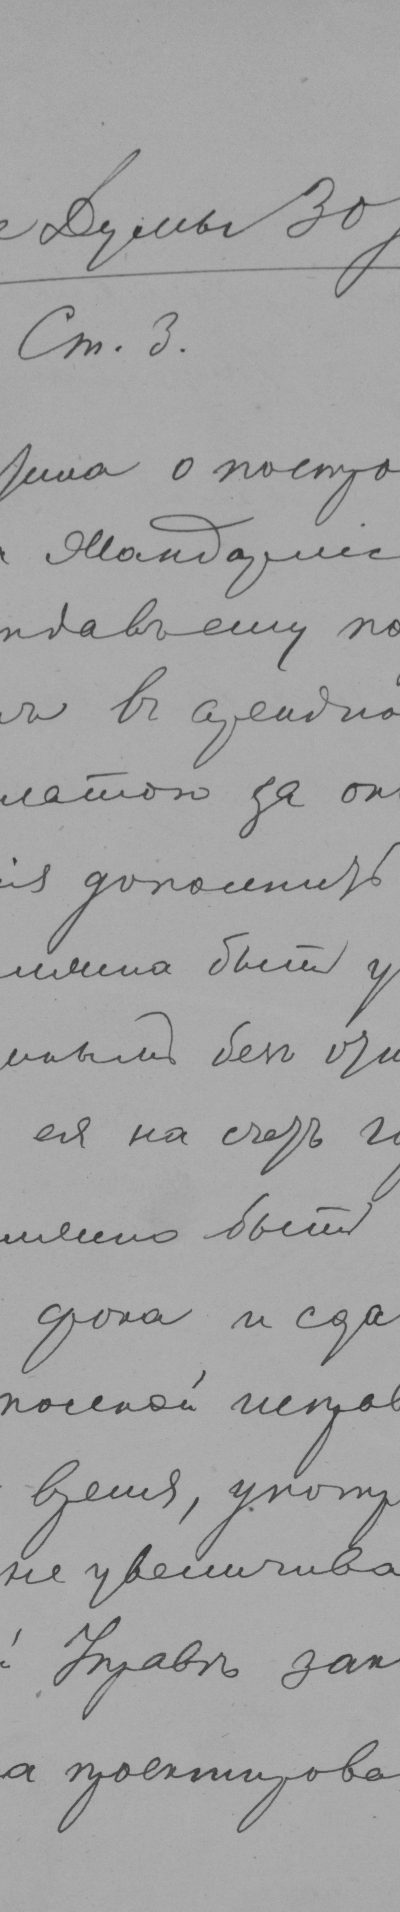 Думы 30
Ст. 3.
о постро
Жандармс
ндавъему по
въ арендно
платою за
ія дополнить
лжна быть у
нымъ безъ
ея на счетъ го
лжно быть
срока и сда
полной исправ
время, употр
не увеличива
й Управѣ зак
а проектирова